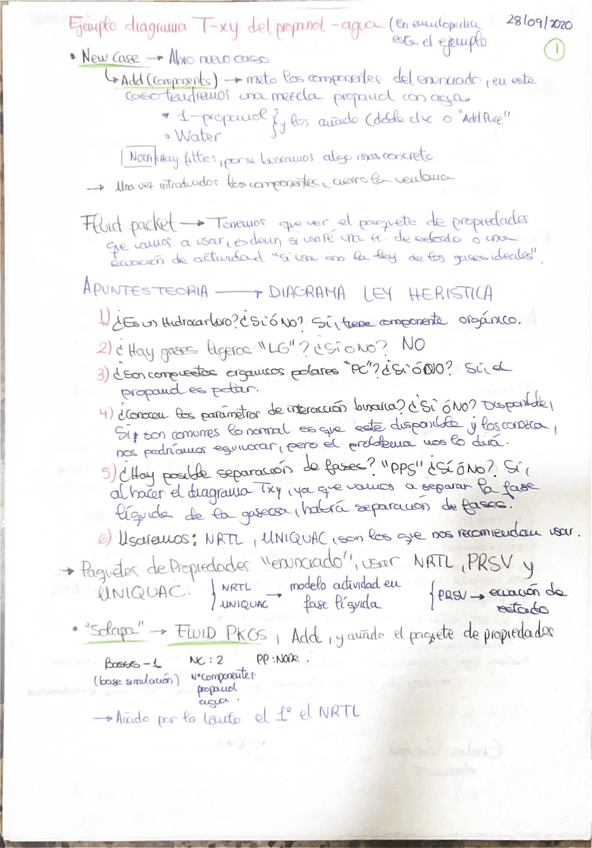 Ejemplo diagrama T-xy del propanol-agua (En enciclopedia
está el ejemplo
28/09/2020
1
• New case → Abro nuevo caso
↳ Add (components) → meto los componentes del enunciado, en este
caso tendremos una mezcla propanol con agua.
* 1-propanol } y los añado (doble clic o "Add Pure"
• Water
Nota Hay filtros, por si buscamos algo mas concreto
→ Una vez introducidos los componentes, cierro la ventana
Fluid packet → Tenemos que ver el paquete de propiedades
que vamos a usar, es decir si usaré una ec. de estado o una
ecuación de actividad "si usa o no la ley de los gases ideales".
APUNTES TEORIA → DIAGRAMA LEY HERISTICA
1) ¿Es un Hidrocarburo? ¿Si ó No? Sí, tiene componente orgánico.
2) ¿Hay gases ligeros "LG"? ¿Si o No? NO
3) ¿Son compuestos organicos polares "PC"? ¿Si ó NO? Sí, el
propanol es polar.
4) ¿Conocen los parámetros de interacción binaria? ¿Si ó No? Disponible,
Si, son comunes lo normal es que este disponible y los conozca,
nos podríamos equivocar, pero el problema nos lo dirá.
5) ¿Hay posible separación de fases? "PPS" ¿Si ó No? Si,
al hacer el diagrama Txy, ya que vamos a separar la fase
líquida de la gaseosa, habrá separación de fases.
6) Usaremos: NRTL, UNIQUAC, son los que nos recomiendan usar.
→ Paquetes de Propiedades "enunciado", usar NRTL, PRSV y
UNIQUAC. { NRTL UNIQUAC → modelo actividad en fase líquida { PRSV → ecuación de estado
• "Solapa" → FLUID PKGS, Add, y añado el paquete de propiedades
Basis-1 NC: 2 PP: None.
(base simulación) Nº componentes
propanol
agua.
→ Añado por lo tanto el 1º el NRTL